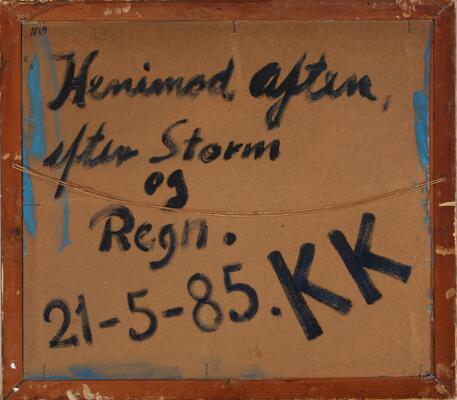 1569
Henimod aften,
efter Storm
og
Regn.
21-5-85. KK